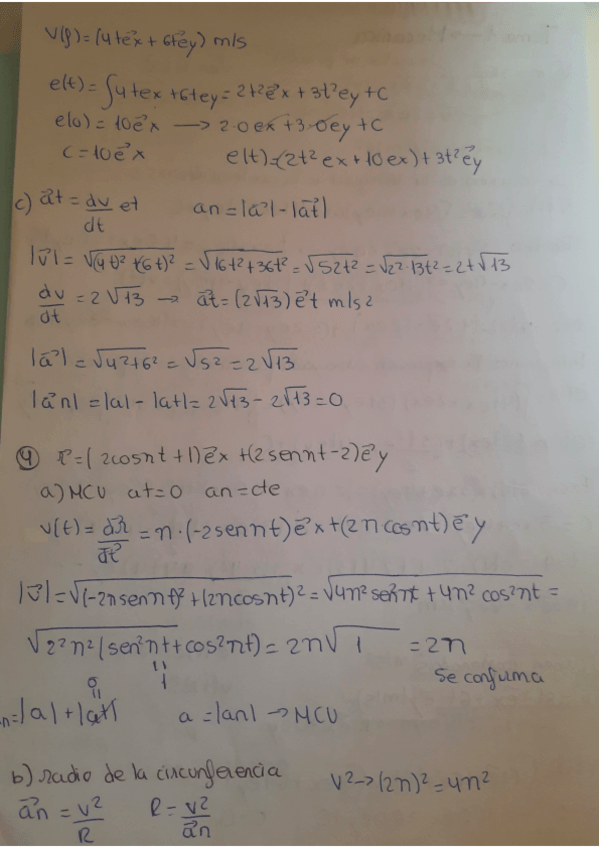 V(t)=(4te⃗x + 6te⃗y) m/s
e(t)=∫4tex +6tey=2t²e⃗x + 3t²ey +C
e(0)=10e⃗x → 2·0ex +3·0ey +C
C=10e⃗x e(t)=(2t²ex+10ex)+3t²e⃗y
c) a⃗t = dv/dt et an=|a⃗|-|a⃗t|
|v⃗|= √(4t)²+(6t)² = √16t²+36t² = √52t² = √2²·13t² = 2t√13
dv/dt = 2√13 → a⃗t=(2√13)e⃗t m/s2
|a⃗|=√4²+6² = √52 = 2√13
|a⃗n|=|a|-|at|=2√13-2√13=0
④ r⃗=(2cosπt+1)e⃗x+(2senπt-2)e⃗y
a)MCU at=0 an=cte
v(t)=dr⃗/dt=π·(-2senπt)e⃗x+(2πcosπt)e⃗y
|v⃗|=√(-2πsenπt)²+(2πcosπt)² = √4π²sen²πt + 4π²cos²πt =
√2²π²(sen²πt+cos²πt) = 2π√1 = 2π
1
Se confirma
0
an=|a|+|at| a=|an|→MCU
b) radio de la circunferencia V²→(2π)²=4π²
a⃗n = v²/R R = v²/a⃗n